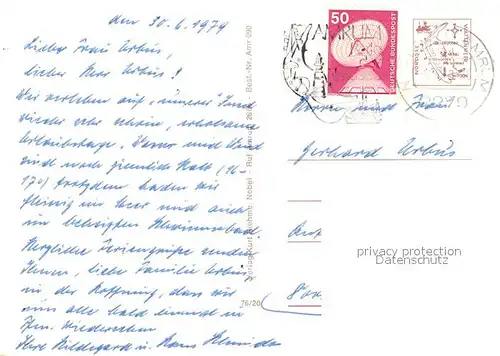 den 30.6.1979
Lieber Frau Urbus,
lieber Herr Urbus!
Wir verleben auf "unserer" Insel
wieder sehr schöne, erholsame
Urlaubstage. Wasser und Wind
sind noch ziemlich kalt (16-
17°) trotzdem baden wir
fleißig im Meer und auch
im beheizten Schwimmbad
Herzliche Feriengrüße senden
Ihnen, liebe Familie Urbus,
in der Hoffnung, daß wir
uns alle bald einmal in
Wiedersehen
Ihre Hildegard u. Hans
Verlag Kurt Nobel
Ruf
Best.-Nr. Amr 090
76/20
50
DEUTSCHE BUNDESPOST
AMRUM
NORDSEE
Herrn und Frau
Gerhard Urbus
privacy protection
Datenschutz